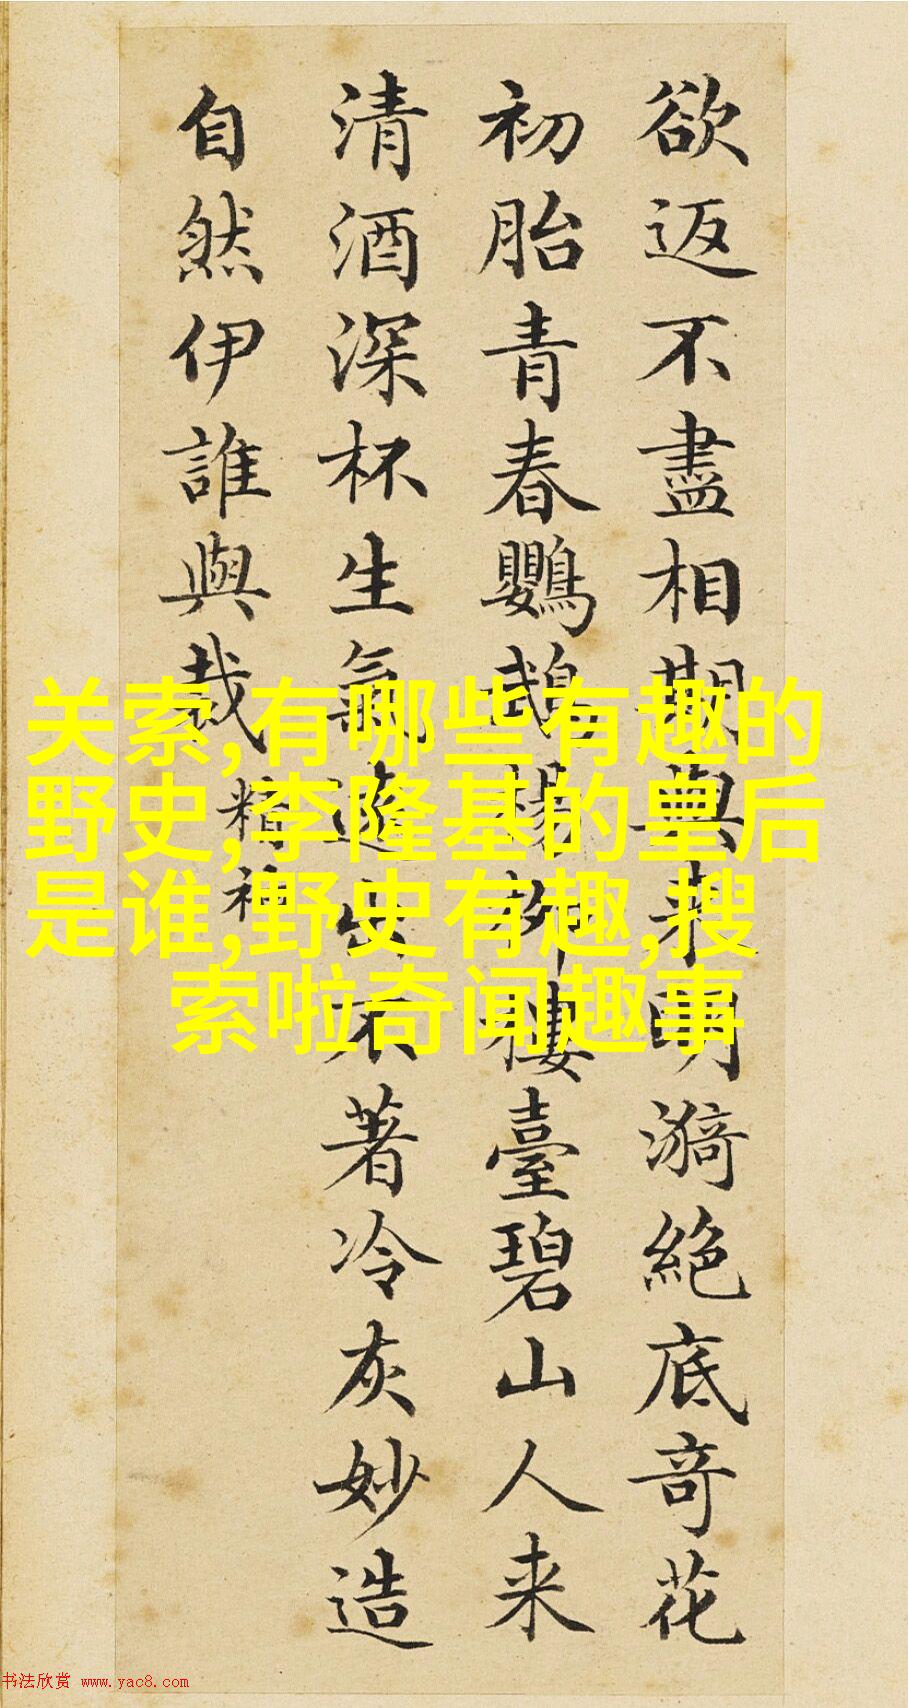 欲返不盡相期與来明漪絶底奇花
初胎青春鸚鵡楊柳樓臺碧山人来
清酒深杯生氣遠出不著冷灰妙造
自然伊誰與裁
精神
关索,有哪些有趣的
野史,李隆基的皇后
是谁,野史有趣,搜
索啦奇闻趣事
书法欣赏 www.yac8.com